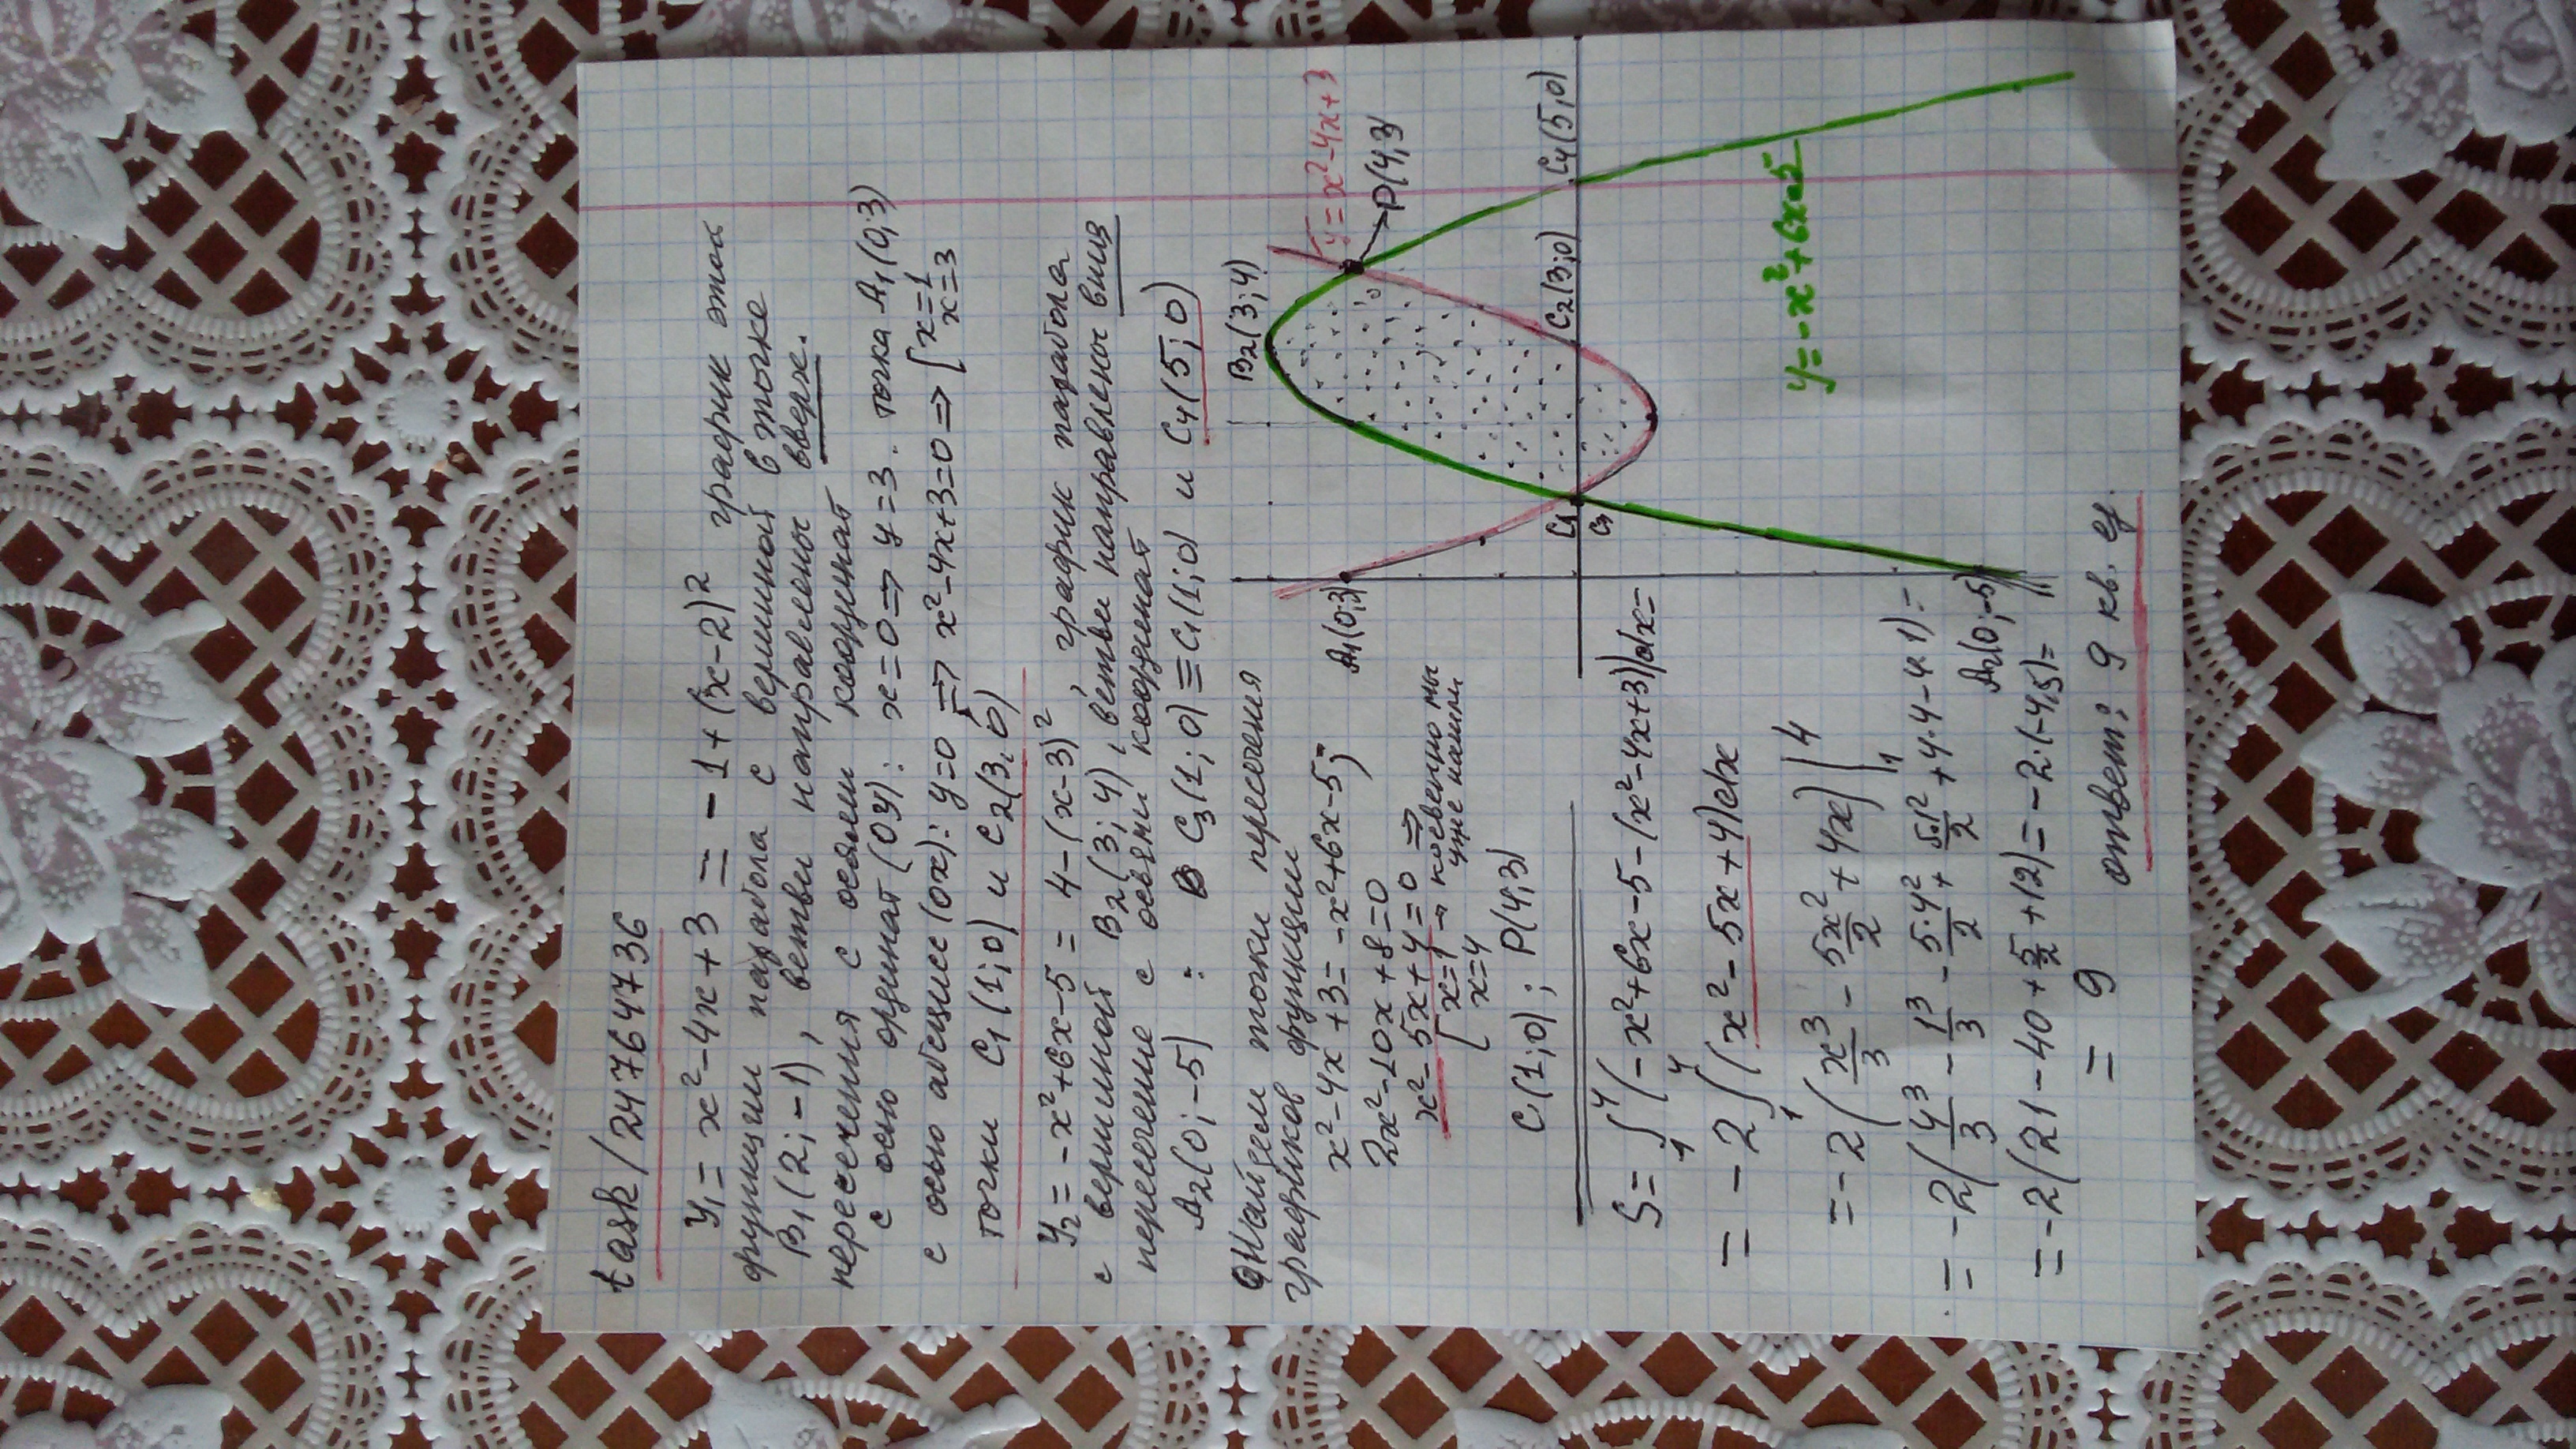 task/24764736
y₁ = x²-4x+3 = -1+(x-2)² график этой
функции парабола с вершиной в точке
B₁(2;-1), ветви направлены вверх.
пересечения с осями координат
с осью ординат (OY): x=0 ⇒ y=3. точка A₁(0;3)
с осью абсцисс (ox): y=0 ⇒ x²-4x+3=0 ⇒ [x=1
x=3
точки C₁(1;0) и C₂(3;0)
y₂ = -x²+6x-5 = 4-(x-3)², график парабола
с вершиной B₂(3;4), ветви направлены вниз
пересечение с осями координат
A₂(0;-5) : C₃(1;0)≡C₁(1;0) и C₄(5;0)
Найдем точки пересечения
графиков функции
x²-4x+3 = -x²+6x-5;
2x²-10x+8=0
x²-5x+4=0 ⇒
[x=1 → косвенно мы
уже нашли
x=4
C(1;0); P(4;3)
S = ∫₁⁴(-x²+6x-5-(x²-4x+3))dx=
= -2∫₁⁴(x²-5x+4)dx
=-2(x³/3 - 5x²/2 + 4x)|₁⁴
= -2(4³/3 - 1³/3 - 5·4²/2 + 5·1²/2 + 4·4-4·1)=
=-2(21-40+5/2+12)=-2·(-4,5)=
= 9 ответ: 9 кв. ед.
B₂(3;4)
A₁(0;3)
y=x²-4x+3
P(4,3)
C₁
C₃
C₂(3;0)
C₄(5,0)
y=-x²+6x-5
A₂(0;-5)